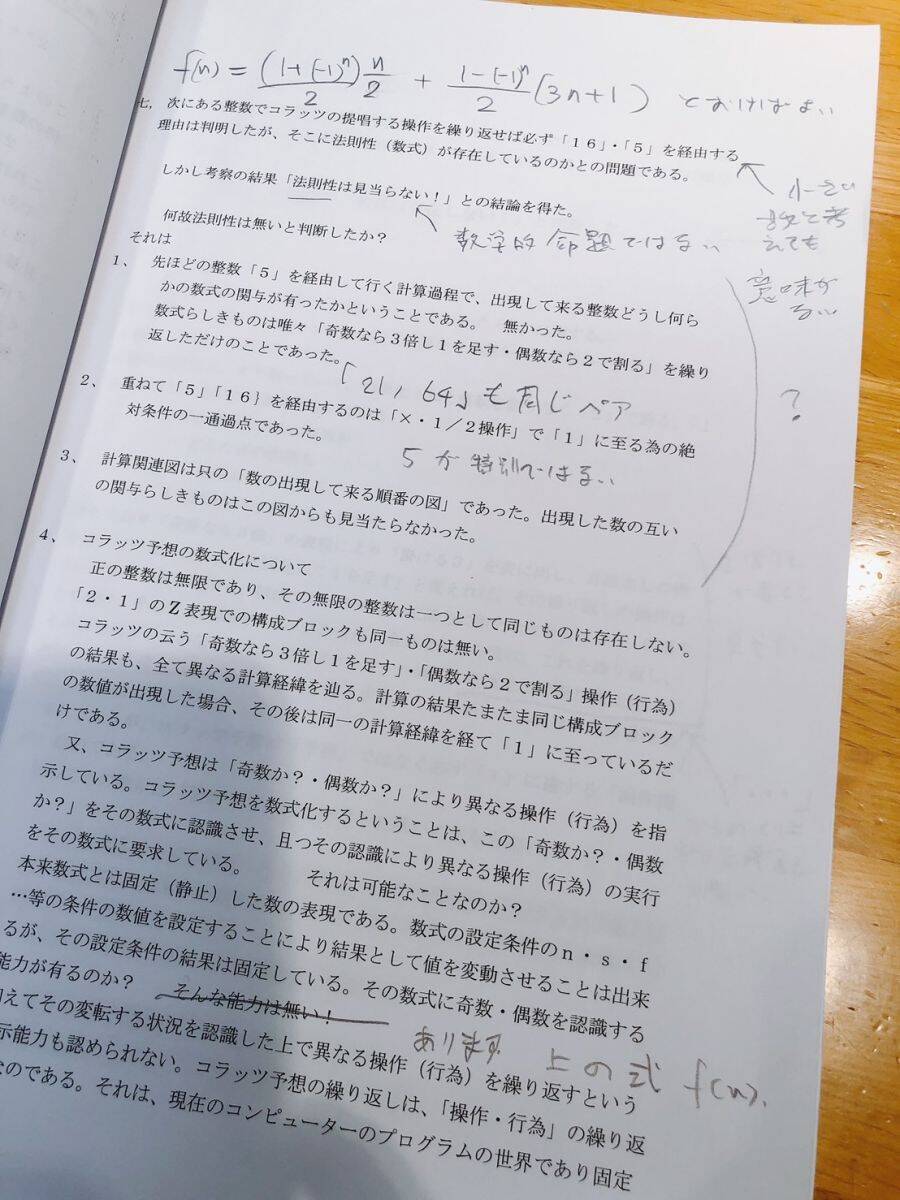 f(n) = (1+(-1)^n)/2 n/2 + 1-(-1)^n/2 (3n+1) とおけばよい
七, 次にある整数でコラッツの提唱する操作を繰り返せば必ず「16」・「5」を経由する
理由は判明したが、そこに法則性（数式）が存在しているのかとの問題である。
しかし考察の結果「法則性は見当らない！」との結論を得た。
数学的命題ではない
何故法則性は無いと判断したか？
それは
意味が
ない
?
1、 先ほどの整数「5」を経由して行く計算過程で、出現して来る整数どうし何ら
かの数式の関与が有ったかということである。 無かった。
数式らしきものは唯々「奇数なら3倍し1を足す・偶数なら2で割る」を繰り
返しただけのことであった。
「21, 64」も同じペア
2、 重ねて「5」「16｝を経由するのは「×・1/2操作」で「1」に至る為の絶
対条件の一通過点であった。
5が特別ではない
3、 計算関連図は只の「数の出現して来る順番の図」であった。出現した数の互い
の関与らしきものはこの図からも見当たらなかった。
4、 コラッツ予想の数式化について
正の整数は無限であり、その無限の整数は一つとして同じものは存在しない。
「2・1」のZ表現での構成ブロックも同一ものは無い。
コラッツの云う「奇数なら3倍し1を足す」・「偶数なら2で割る」操作（行為）
の結果も、全て異なる計算経緯を辿る。計算の結果たまたま同じ構成ブロック
の数値が出現した場合、その後は同一の計算経緯を経て「1」に至っているだ
けである。
又、コラッツ予想は「奇数か？・偶数か？」により異なる操作（行為）を指
示している。コラッツ予想を数式化するということは、この「奇数か？・偶数
か？」をその数式に認識させ、且つその認識により異なる操作（行為）の実行
をその数式に要求している。 それは可能なことなのか？
本来数式とは固定（静止）した数の表現である。数式の設定条件のn・s・f
…等の条件の数値を設定することにより結果として値を変動させることは出来
るが、その設定条件の結果は固定している。その数式に奇数・偶数を認識する
能力が有るのか？ そんな能力は無い！
あります 上の式 f(n).
えてその変転する状況を認識した上で異なる操作（行為）を繰り返すという
示能力も認められない。コラッツ予想の繰り返しは、「操作・行為」の繰り返
なのである。それは、現在のコンピューターのプログラムの世界であり固定